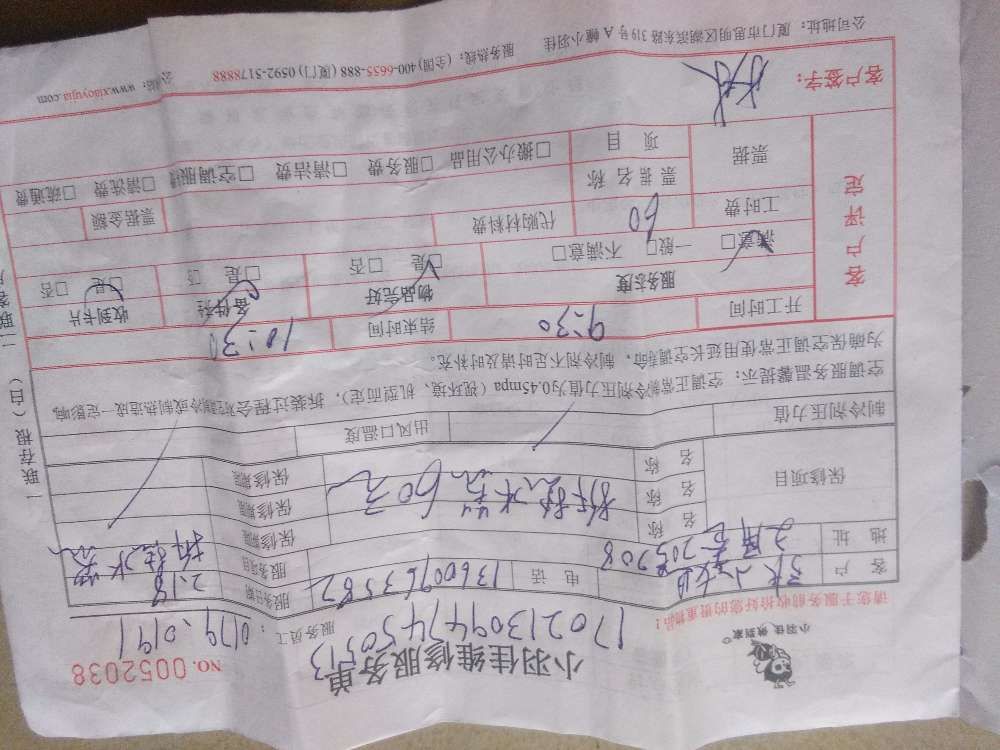 小羽佳 做到家
小羽佳维修服务单
NO. 0052038
170213094745
0513
请您于服务前收拾好您的贵重物品！
服务员工：0179、0191
客户
电话 13600963582
服务日期 2.18
地址 708
服务项目 拆装水
保修项目
名称
保修期
名称 拆装水 60元
保修期
名称
保修期
制冷剂压力值
出风口温度
空调服务温馨提示：空调正常制冷剂压力值为0.45mpa（视环境、机型而定），拆装过程会对制冷或制热造成一定影响，
为确保空调正常使用延长空调寿命，制冷剂不足时请及时补充。
客户评定
开工时间 9:30
结束时间 10:30
服务态度
物品完好
备件
收到卡片
满意□ 一般□ 不满意□
□是 □否
□是 □否
□是 □否
工时费 60
代购材料费
票据金额
票据
票据名称
项目
□搬办公用品 □服务费 □清洁费 □空调服 □清洗费 □疏通费
客户签字：
公司地址：厦门市思明区湖滨东路319号A幢小羽佳
服务热线：(全国)400-6655-888 (厦门)0592-5178888
www.xiaoyujia.com
一联存根（白）
二联客户